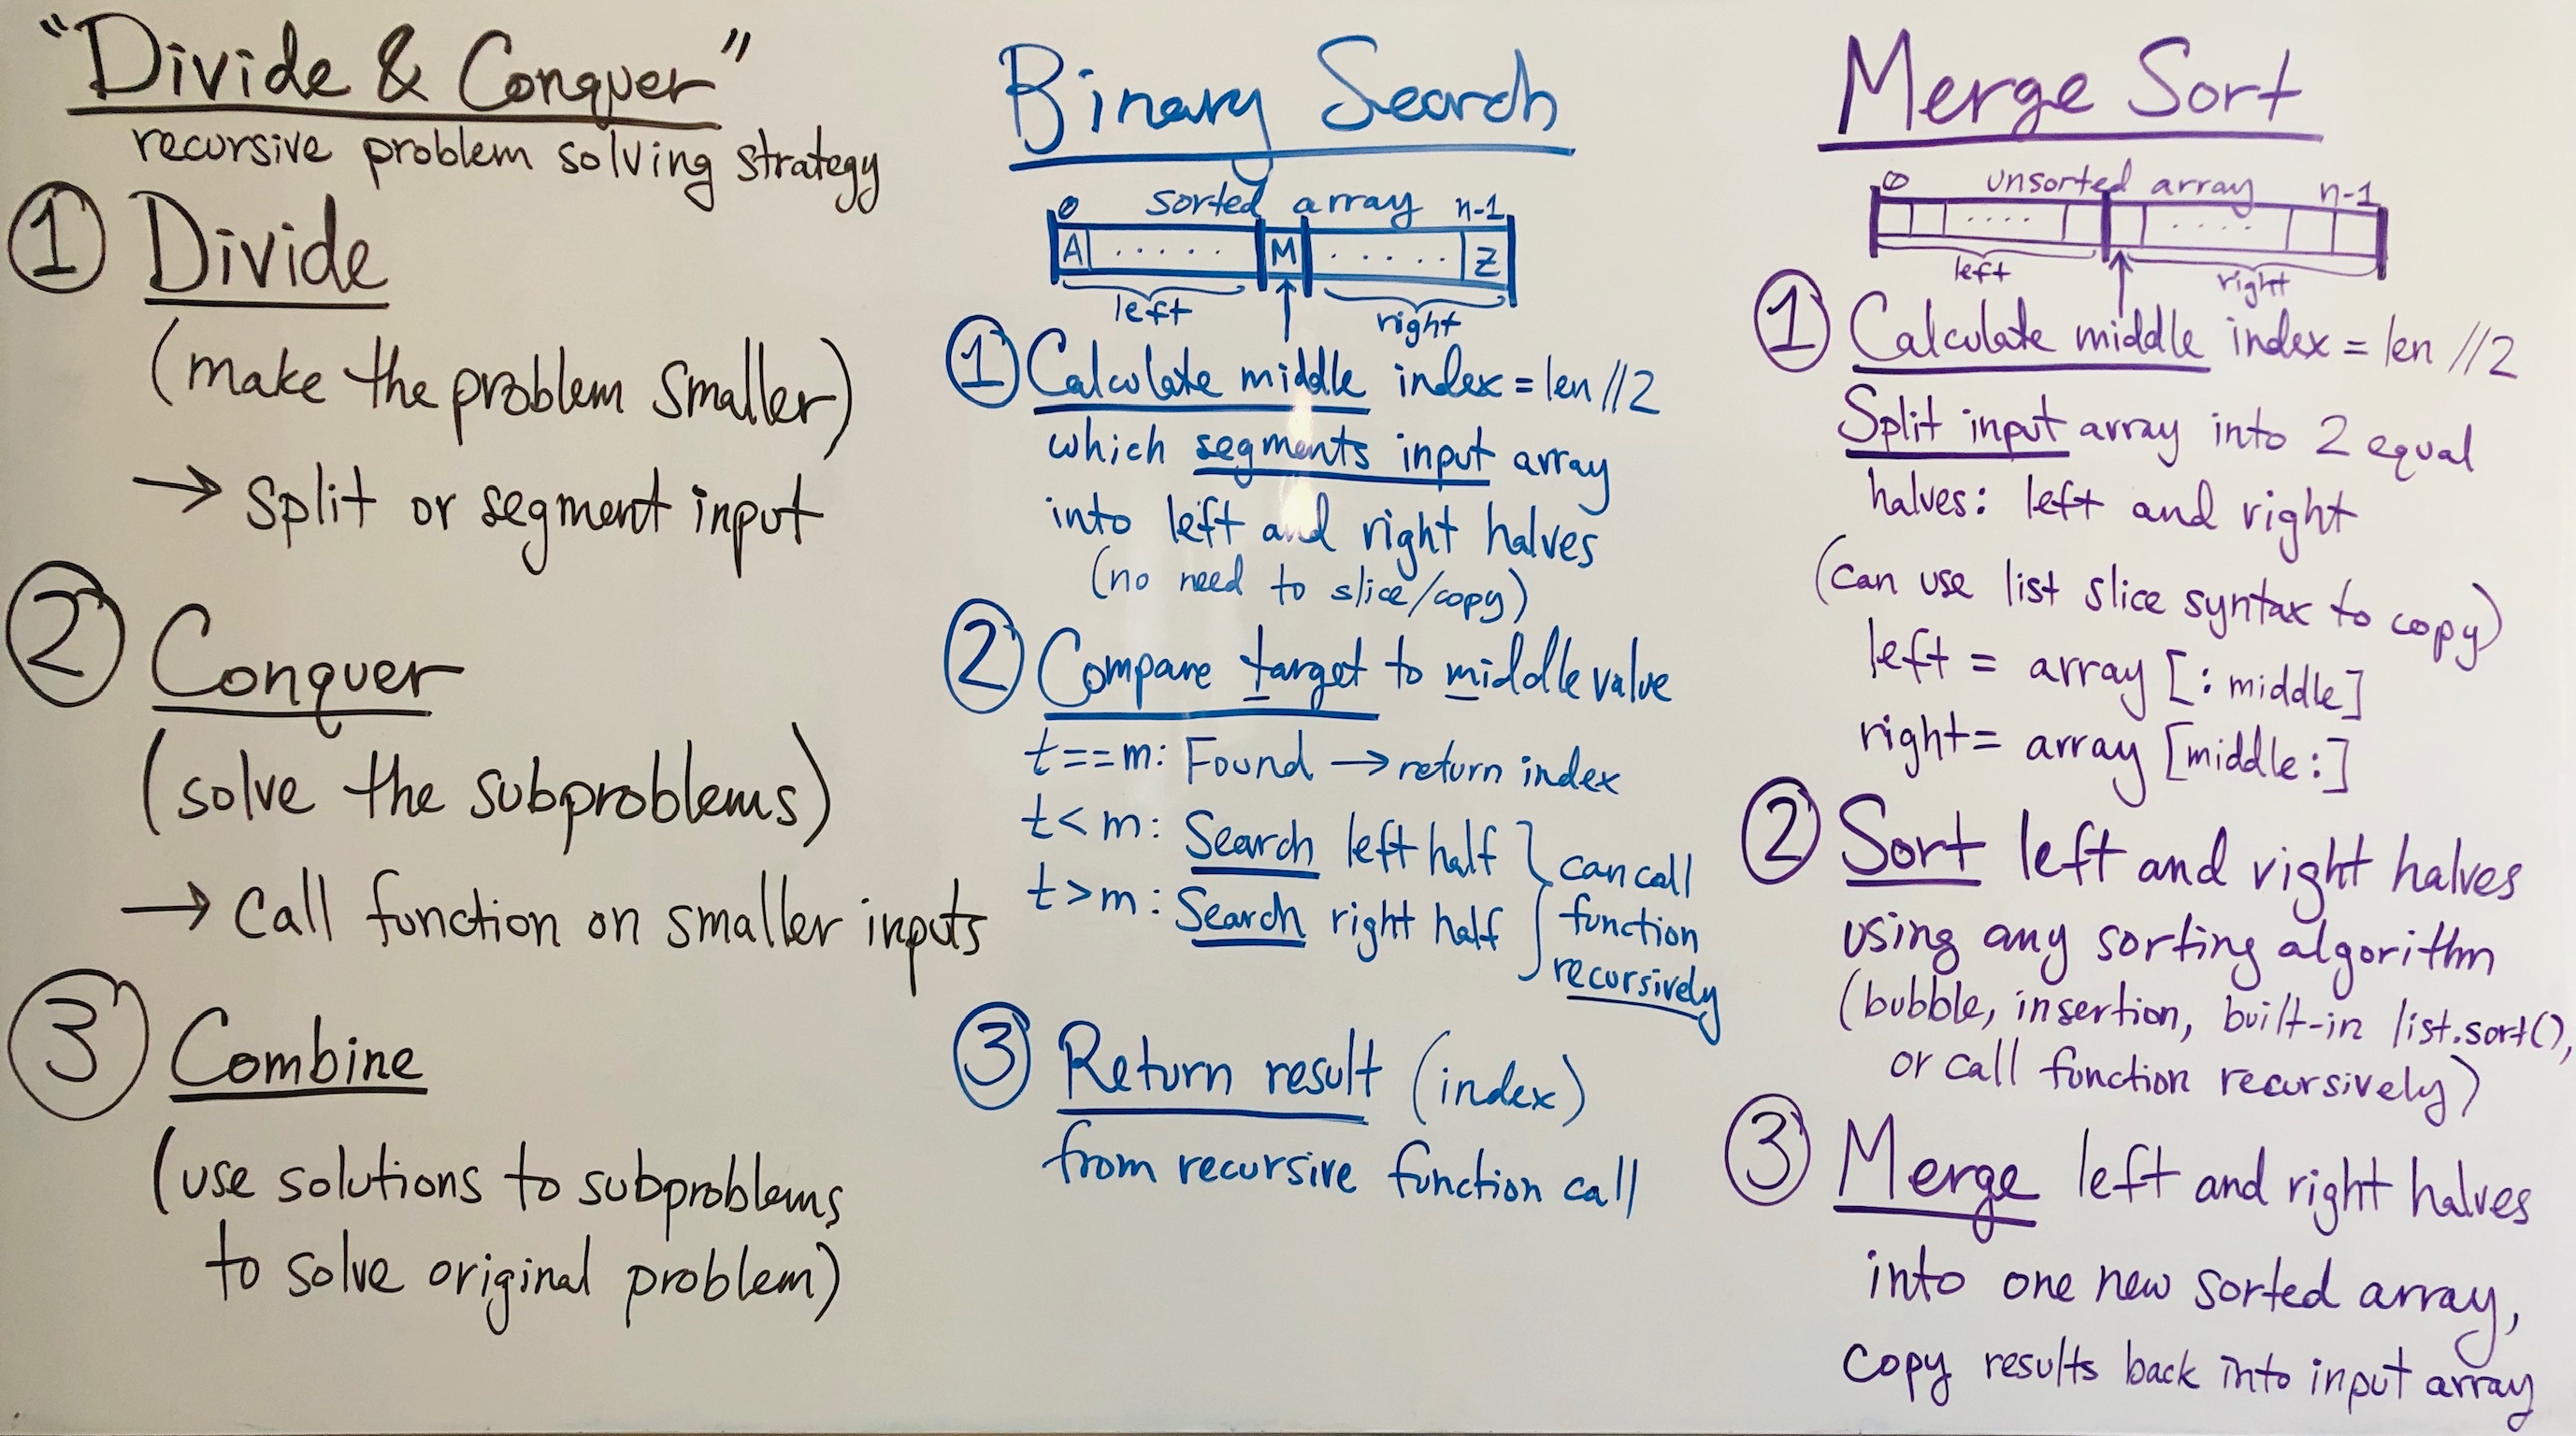 "Divide & Conquer"
recursive problem solving strategy
① Divide
(make the problem smaller)
→ split or segment input
② Conquer
(solve the subproblems)
→ call function on smaller inputs
③ Combine
(use solutions to subproblems
to solve original problem)
Binary Search
0 sorted array n-1
A ..... M ..... Z
left
right
① Calculate middle index = len//2
which segments input array
into left and right halves
(no need to slice/copy)
② Compare target to middle value
t==m: Found → return index
t<m: Search left half
t>m: Search right half
can call
function
recursively
③ Return result (index)
from recursive function call
Merge Sort
0 unsorted array n-1
.... ....
left
right
① Calculate middle index = len//2
Split input array into 2 equal
halves: left and right
(can use list slice syntax to copy)
left = array [:middle]
right = array [middle:]
② Sort left and right halves
using any sorting algorithm
(bubble, insertion, built-in list.sort(),
or call function recursively)
③ Merge left and right halves
into one new sorted array,
copy results back into input array